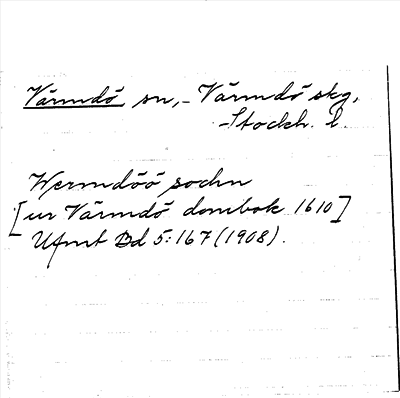 Värmdö sn, - Värmdö skg,
Stockh. l.
Wermdöö sochn
[ur Värmdö dombok 1610]
Ufmt Bd 5:167 (1908).